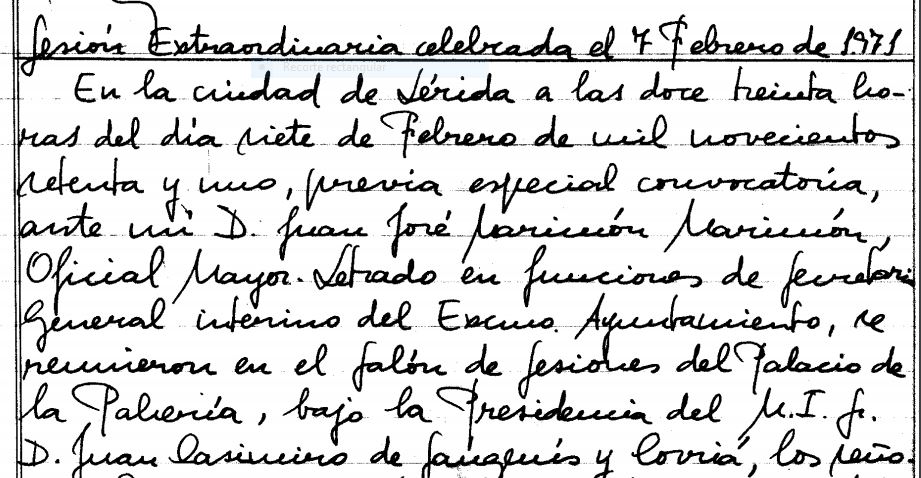 Sesión Extraordinaria celebrada el 7 Febrero de 1971
Recorte rectangular
En la ciudad de Lérida a las doce treinta ho-
ras del día siete de Febrero de mil novecientos
setenta y uno, previa especial convocatoria,
ante mí D. Juan José Marimón Marimón,
Oficial Mayor-Letrado en funciones de Secretari
General interino del Excmo. Ayuntamiento, se
reunieron en el Salón de Sesiones del Palacio de
la Pahería, bajo la Presidencia del M.I. Sr.
D. Juan Casimiro de Sangenís y Corriá, los seño-